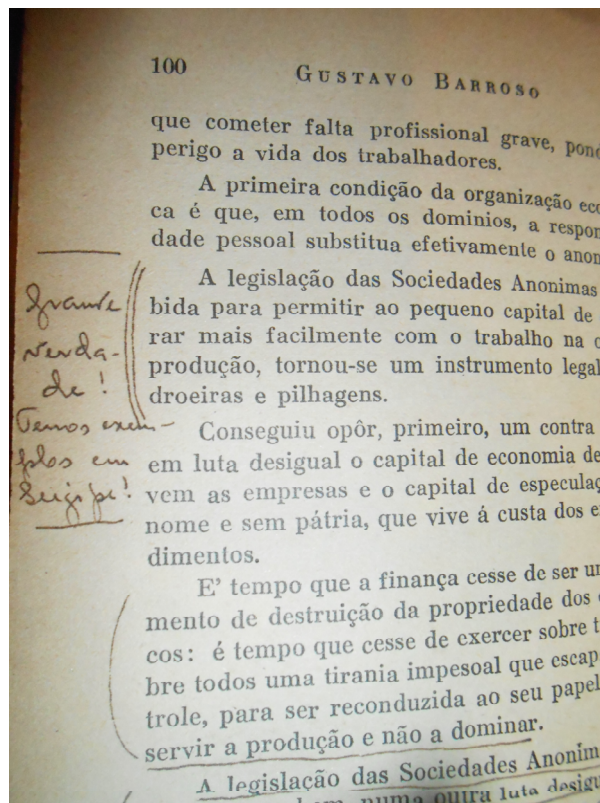 100 GUSTAVO BARROSO
que cometer falta profissional grave, pond
perigo a vida dos trabalhadores.
A primeira condição da organização eco
ca é que, em todos os dominios, a respon
dade pessoal substitua efetivamente o anon
A legislação das Sociedades Anonimas
bida para permitir ao pequeno capital de
rar mais facilmente com o trabalho na
produção, tornou-se um instrumento legal
droeiras e pilhagens.
Conseguiu opôr, primeiro, um contra
em luta desigual o capital de economia de
vem as empresas e o capital de especulaç
nome e sem pátria, que vive á custa dos
dimentos.
E' tempo que a finança cesse de ser um
mento de destruição da propriedade dos
cos: é tempo que cesse de exercer sobre t
bre todos uma tirania impesoal que escap
trole, para ser reconduzida ao seu papel
servir a produção e não a dominar.
A legislação das Sociedades Anonim
numa outra luta desigu
Grande
verda-
de!
Temos exem-
plos em
Sergipe!